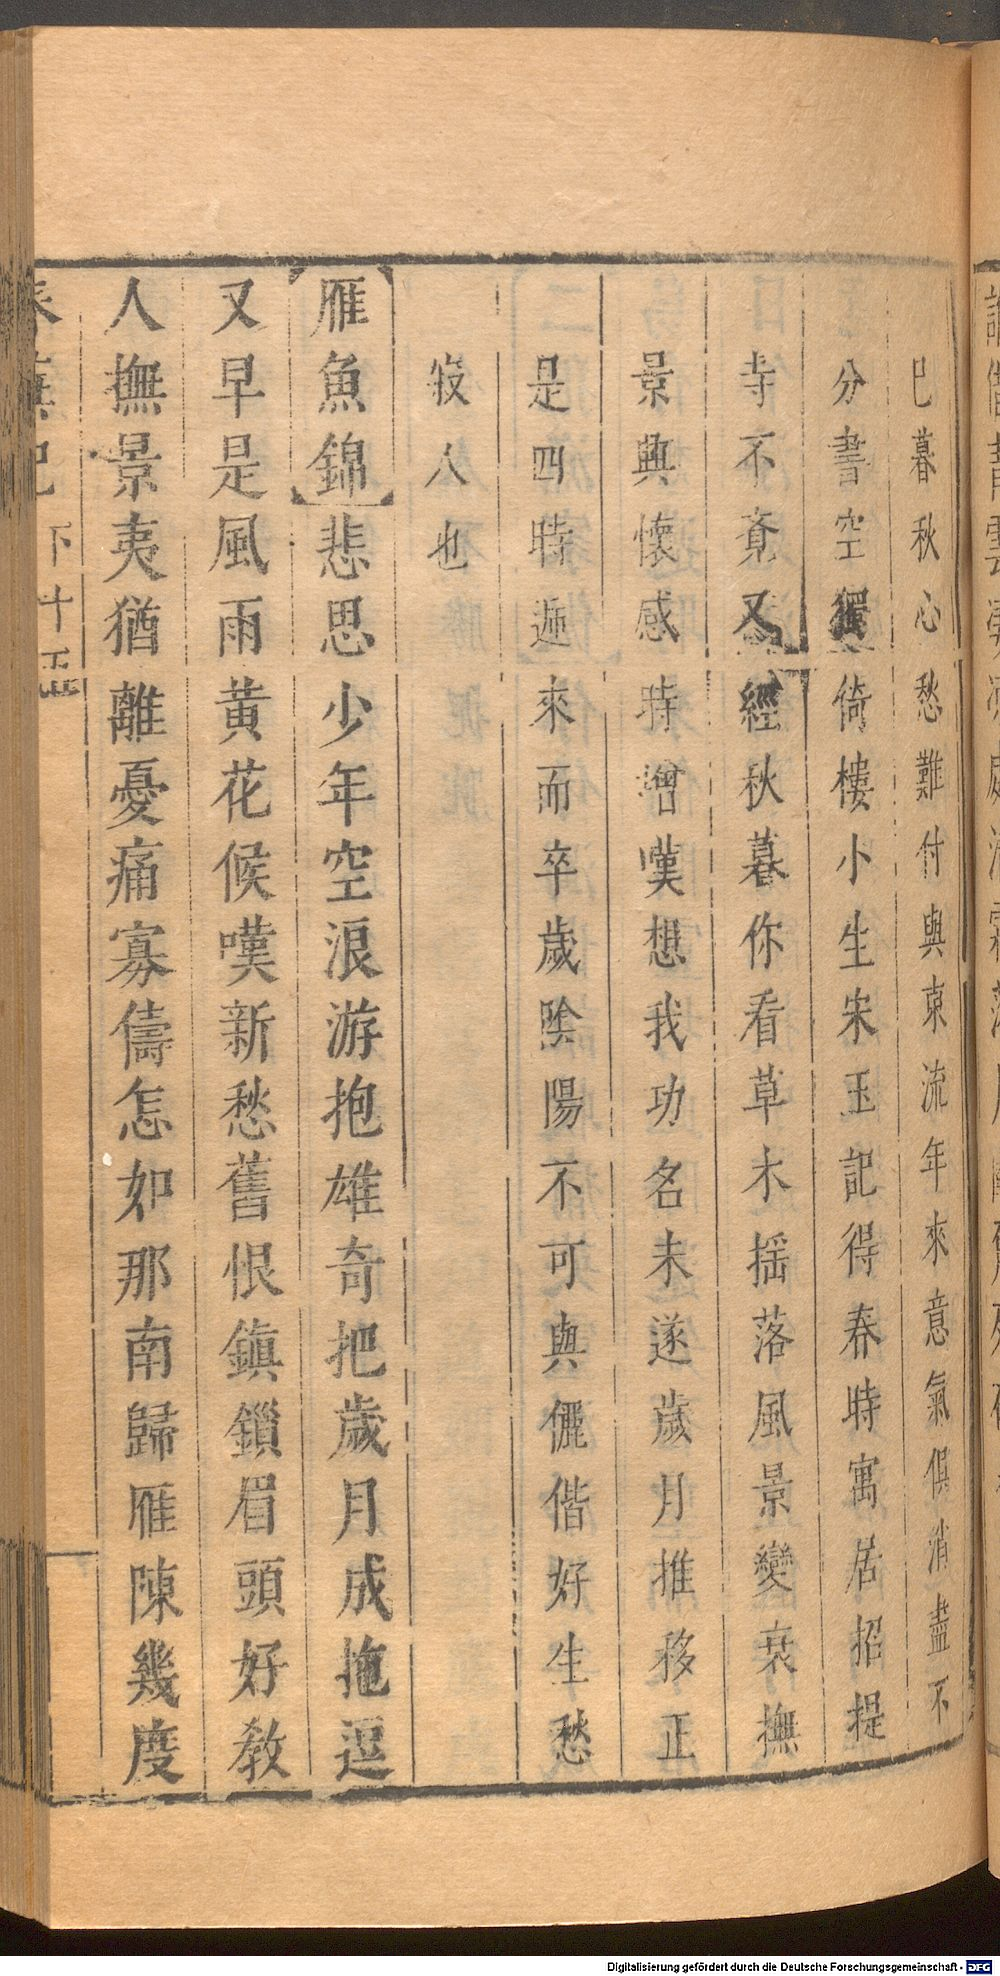 已暮秋心愁難付與東流年來意氣俱消盡不
分書空獨倚樓小生宋玉記得春時寓居招提
寺不覔又經秋暮你看草木揺落風景變衰撫
景興懷感時增嘆想我功名未遂歲月推移正
是四時遞來而卒歲陰陽不可與儷偕好生愁
㝛人也
雁魚錦悲思少年空浪游抱雄奇把歲月成拖逗
又早是風雨黃花候嘆新愁舊恨鎮鎖眉頭好教
人撫景夷猶離憂痛寡儔怎如那南歸雁陳幾度
記 下 十五
Digitalisierung gefördert durch die Deutsche Forschungsgemeinschaft - DFG